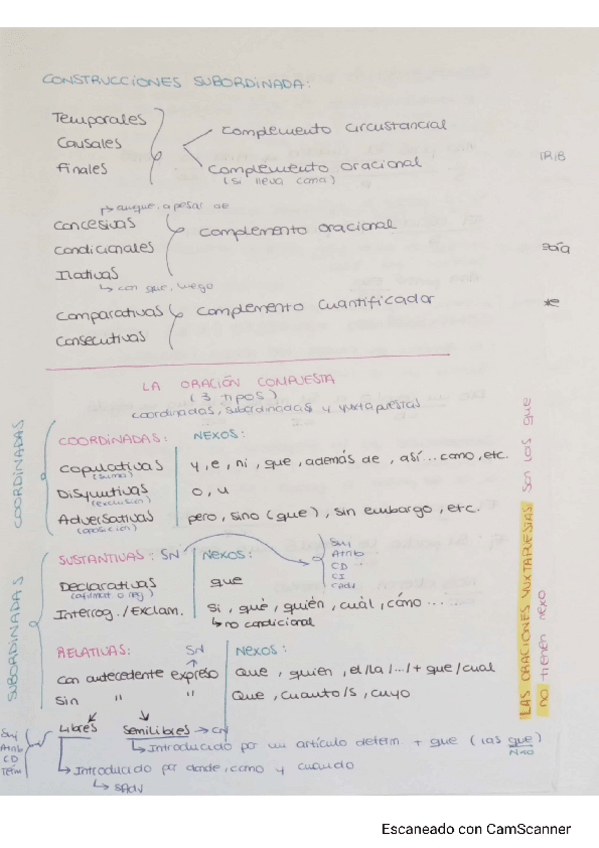 CONSTRUCCIONES SUBORDINADA:
Temporales
Causales
Finales
complemento circustancial
complemento oracional
(si lleva coma)
IRIB
↳ aunque, a pesar de
Concesivas
Condicionales
Ilativas
complemento oracional
↳ con que, luego
Comparativas
Consecutivas
complemento cuantificador
LA ORACIÓN COMPUESTA
(3 tipos)
coordinadas, subordinadas y yuxtapuestas
COORDINADAS
COORDINADAS: NEXOS:
Copulativas y, e, ni, que, además de, así... como, etc.
(suma)
Disyuntivas o, u
(exclusión)
Adversativas pero, sino (que), sin embargo, etc.
(oposición)
SUBORDINADAS
SUSTANTIVAS: SN NEXOS:
Suj
Atrib
CD
CI
Declarativas que
(afirmat o neg)
Interrog./Exclam. Si, qué, quién, cuál, cómo ... ...
↳ no condicional
RELATIVAS: SN NEXOS:
Con antecedente expreso Que, quien, el/la/.../+ que/cual
Sin " " Que, cuanto/s, cuyo
Libres Semilibres → CN
↳ Introducido por un artículo determ + que (las que)
Nxo
↳ Introducido por donde, como y cuando
↳ SAdv
Suj
Atrib
CD
Térm
LAS ORACIONES YUXTAPUESTAS son las que
no tienen nexo
Escaneado con CamScanner